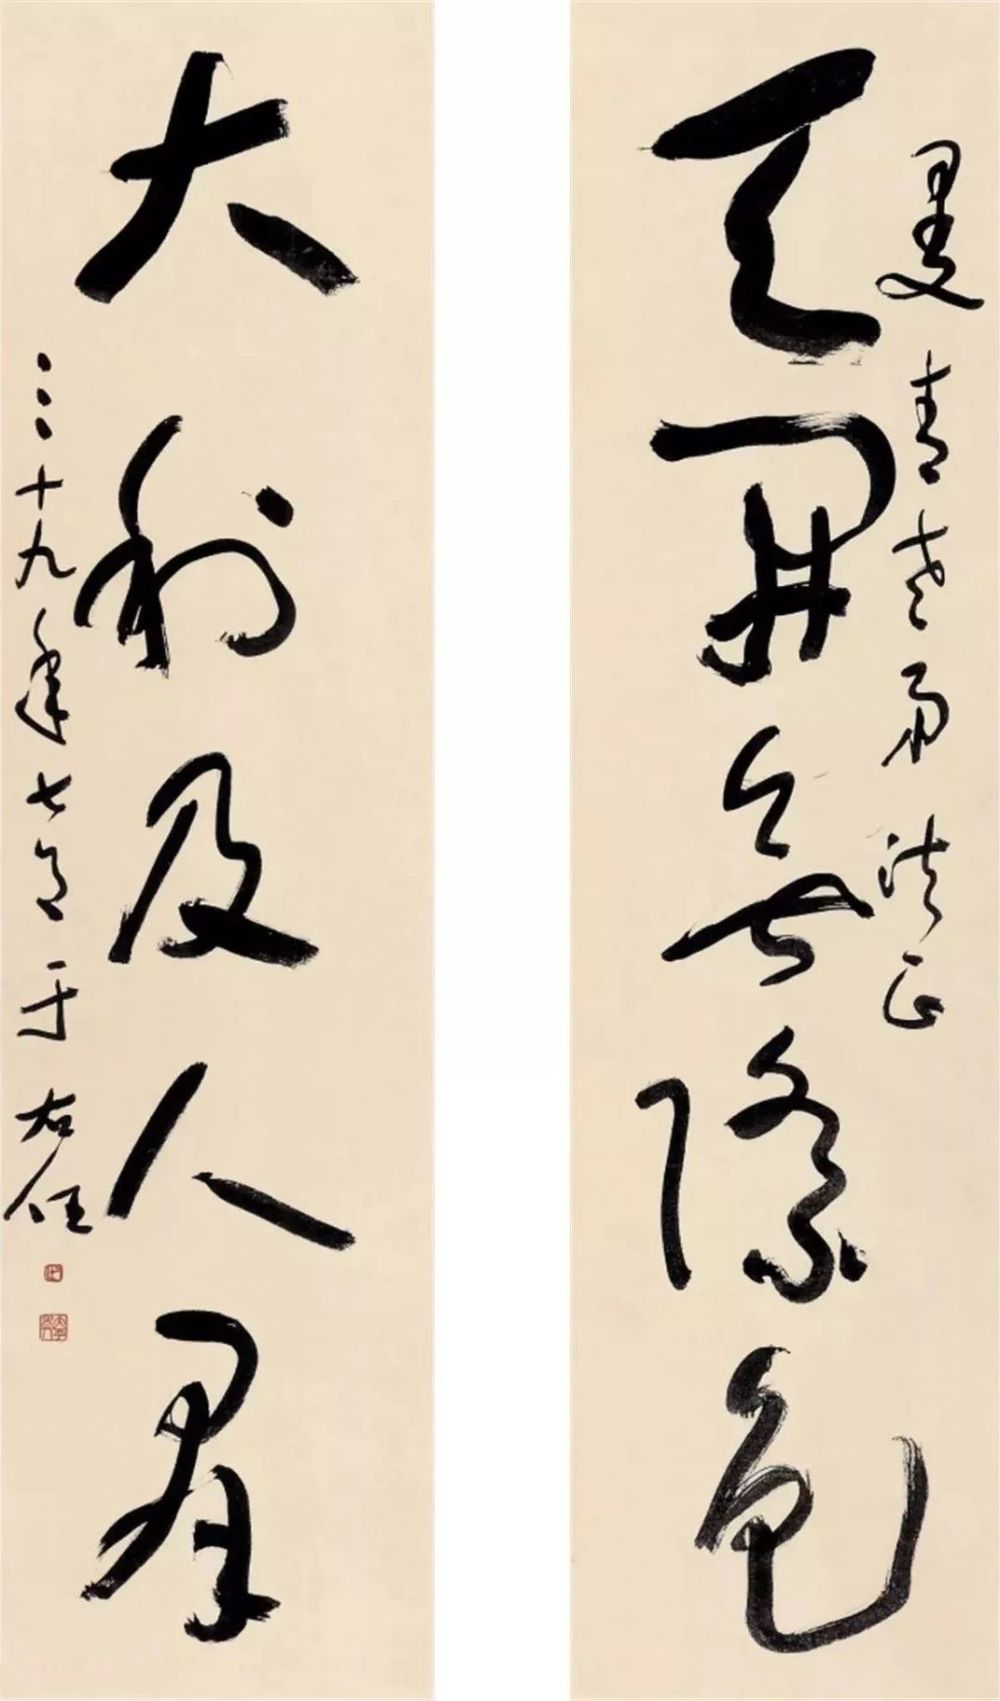 曼青老弟法正
天開無際色
大利及人羣
三十九年七月于右任